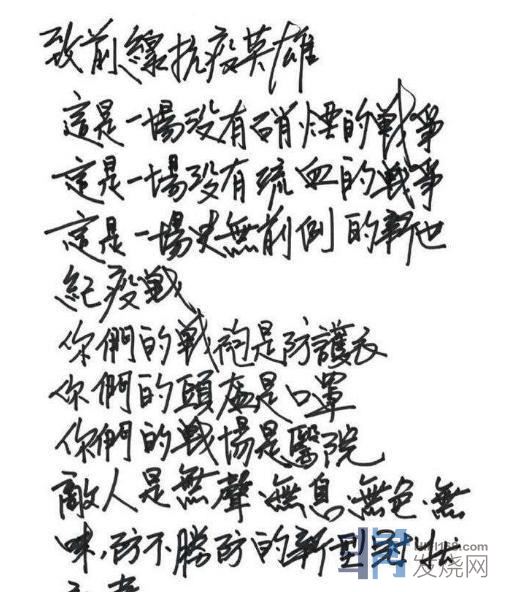 致前線抗疫英雄
這是一場没有硝煙的戰爭
這是一場没有流血的戰爭
這是一場史無前例的新世
紀疫戰
你們的戰袍是防護衣
你們的頭盔是口罩
你們的戰場是醫院
敵人是無聲、無息、無色、無
味,防不勝防的新型冠狀
发烧网